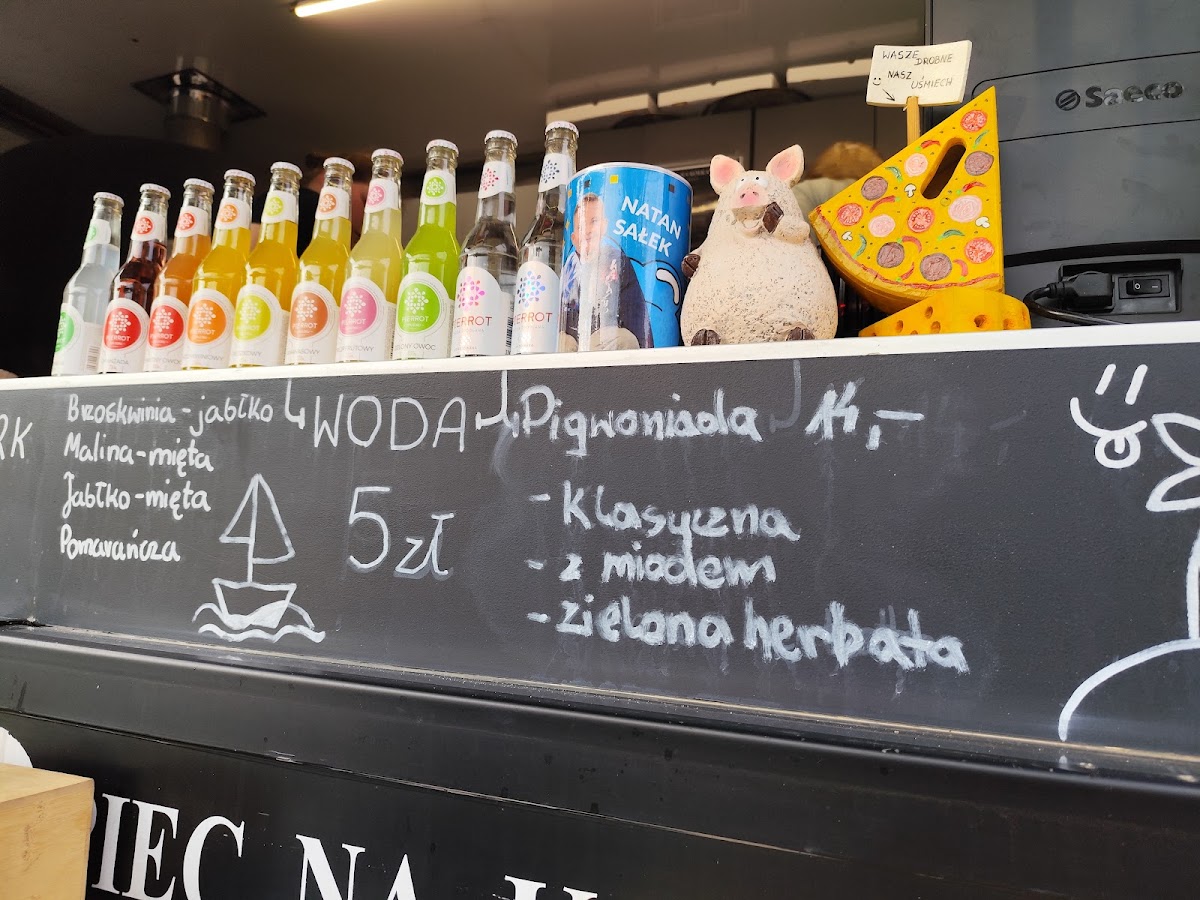 WASZE DROBNE
NASZ UŚMIECH
Saeco
NATAN
SAŁEK
PIERROT
PIERROT
PIERROT
RK
Brzoskwinia - jabłko
Malina - mięta
Jabłko - mięta
Pomarańcza
WODA
5 zł
Pigwoniada 14,-
- Klasyczna
- z miodem
- zielona herbata
PIEC NA